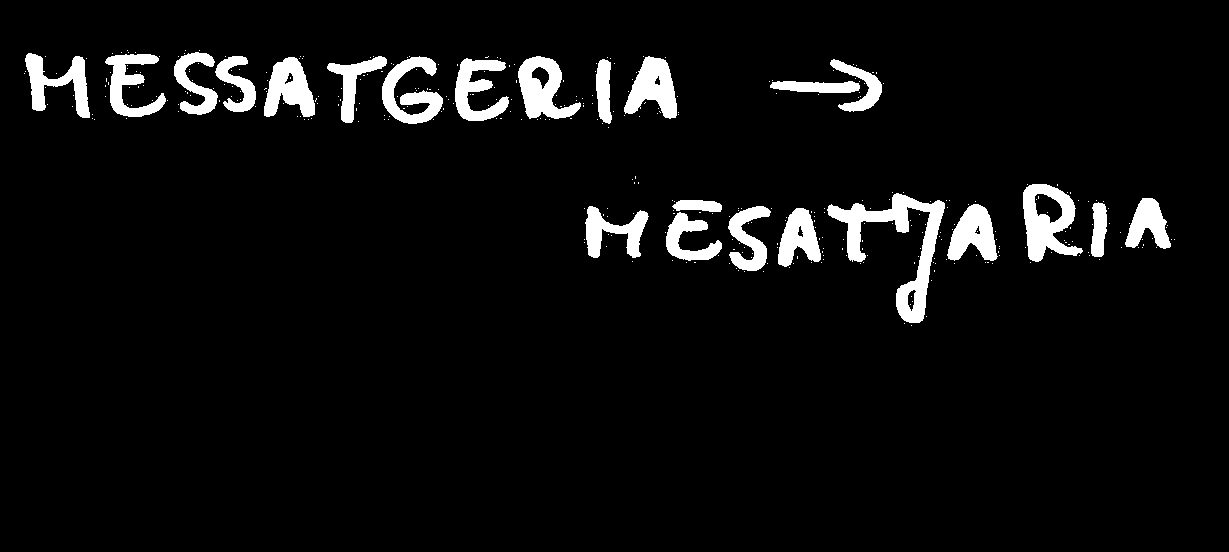 MESSATGERIA →
MESATJARIA